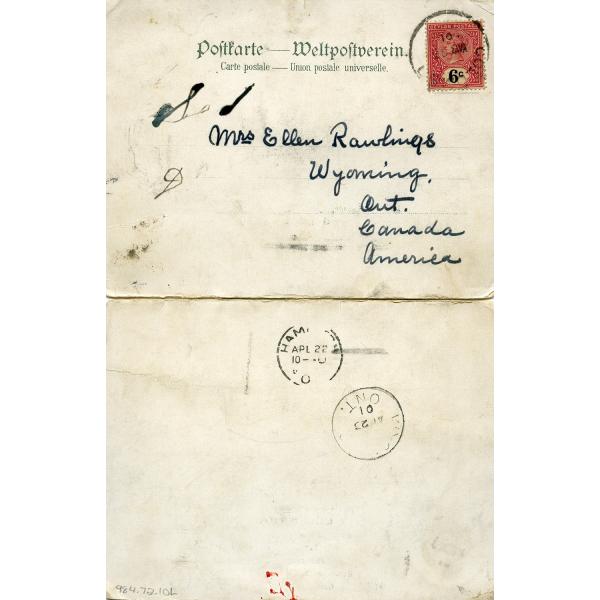 Postkarte — Weltpostverein.
Carte postale — Union postale universelle.
CEYLON POSTAGE
6c
Mrs Ellen Rawlings
Wyoming,
Ont.
Canada
America
APL 22
ONT.
01
23
984.72.10L